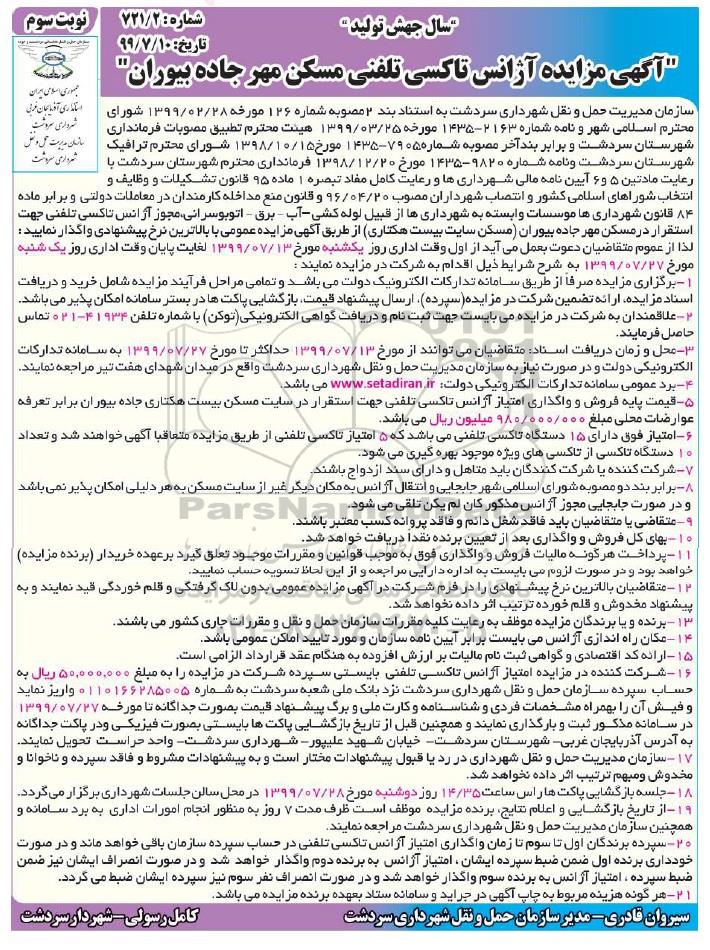 "سال جهش تولید"
شماره: ۷۲۱/۲
تاریخ: ۹۹/۷/۱۰
نوبت سوم
جمهوری اسلامی ایران
استانداری آذربایجان غربی
شهرداری سردشت
سازمان مدیریت حمل و نقل
شهرداری سردشت
"آگهی مزایده آژانس تاکسی تلفنی مسکن مهر جاده بیوران"
سازمان مدیریت حمل و نقل شهرداری سردشت به استناد بند ۲مصوبه شماره ۱۲۶ مورخه ۱۳۹۹/۰۲/۲۸ شورای
محترم اسلامی شهر و نامه شماره ۲۱۶۳-۱۴۳۵ مورخه ۱۳۹۹/۰۳/۲۵ هیئت محترم تطبیق مصوبات فرمانداری
شهرستان سردشت و برابر بندآخر مصوبه شماره۷۹۰۵-۱۴۳۵ مورخ۱۳۹۸/۱۰/۱۵ شورای محترم ترافیک
شهرستان سردشت ونامه شماره ۹۸۲۰-۱۴۳۵ مورخ ۱۳۹۸/۱۲/۲۰ فرمانداری محترم شهرستان سردشت با
رعایت مادتین ۵ و۶ آیین نامه مالی شهرداری ها و رعایت کامل مفاد تبصره ۱ ماده ۹۵ قانون تشکیلات و وظایف و
انتخاب شوراهای اسلامی کشور و انتصاب شهرداران مصوب ۹۶/۰۴/۲۰ و قانون منع مداخله کارمندان در معاملات دولتی و برابر ماده
۸۴ قانون شهرداری ها موسسات وابسته به شهرداری ها از قبیل لوله کشی-آب - برق - اتوبوسرانی،مجوز آژانس تاکسی تلفنی جهت
استقرار درمسکن مهر جاده بیوران (مسکن سایت بیست هکتاری) از طریق آگهی مزایده عمومی با بالاترین نرخ پیشنهادی واگذار نمایید :
لذا از عموم متقاضیان دعوت بعمل می آید از اول وقت اداری روز یکشنبه مورخ ۱۳۹۹/۰۷/۱۳ لغایت پایان وقت اداری روز یک شنبه
مورخ ۱۳۹۹/۰۷/۲۷ به شرح شرایط ذیل اقدام به شرکت در مزایده نمایند :
۱-برگزاری مزایده صرفاً از طریق سامانه تدارکات الکترونیک دولت می باشد و تمامی مراحل فرآیند مزایده شامل خرید و دریافت
اسناد مزایده، ارائه تضمین شرکت در مزایده(سپرده)، ارسال پیشنهاد قیمت، بازگشایی پاکت ها در بستر سامانه امکان پذیر می باشد.
۲-علاقمندان به شرکت در مزایده می بایست جهت ثبت نام و دریافت گواهی الکترونیکی(توکن) با شماره تلفن ۴۱۹۳۴-۰۲۱ تماس
حاصل فرمایند.
۳-محل و زمان دریافت اسناد: متقاضیان می توانند از مورخ ۱۳۹۹/۰۷/۱۳ حداکثر تا مورخ ۱۳۹۹/۰۷/۲۷ به سامانه تدارکات
الکترونیکی دولت و در صورت نیاز به سازمان مدیریت حمل و نقل شهرداری سردشت واقع در میدان شهدای هفت تیر مراجعه نمایند.
۴-برد عمومی سامانه تدارکات الکترونیکی دولت: www.setadiran.ir می باشد.
۵-قیمت پایه فروش و واگذاری امتیاز آژانس تاکسی تلفنی جهت استقرار در سایت مسکن بیست هکتاری جاده بیوران برابر تعرفه
عوارضات محلی مبلغ ۹۸۰/۰۰۰/۰۰۰ میلیون ریال می باشد.
۶-امتیاز فوق دارای ۱۵ دستگاه تاکسی تلفنی می باشد که ۵ امتیاز تاکسی تلفنی از طریق مزایده متعاقبا آگهی خواهند شد و تعداد
۱۰ دستگاه تاکسی از تاکسی های ویژه موجود بهره گیری می شود.
۷-شرکت کننده یا شرکت کنندگان باید متاهل و دارای سند ازدواج باشند.
۸-برابر بنددو مصوبه شورای اسلامی شهر جابجایی و انتقال آژانس به مکان دیگر غیر از سایت مسکن به هر دلیلی امکان پذیر نمی باشد
و در صورت جابجایی مجوز آژانس مذکور کان لم یکن تلقی می شود.
۹-متقاضی یا متقاضیان باید فاقد شغل دائم و فاقد پروانه کسب معتبر باشند.
۱۰-بهای کل فروش و واگذاری بعد از تعیین برنده نقدا دریافت خواهد شد.
۱۱-پرداخت هرگونه مالیات فروش و واگذاری فوق به موجب قوانین و مقررات موجود تعلق گیرد برعهده خریدار (برنده مزایده)
خواهد بود و در صورت لزوم می بایست به اداره دارایی مراجعه و از این لحاظ تسویه حساب نمایید.
۱۲-متقاضیان بالاترین نرخ پیشنهادی را در فرم شرکت در آگهی مزایده عمومی بدون لاک گرفتگی و قلم خوردگی قید نمایند و به
پیشنهاد مخدوش و قلم خورده ترتیب اثر داده نخواهد شد.
۱۳-برنده و یا برندگان مزایده موظف به رعایت کلیه مقررات سازمان حمل و نقل و مقررات جاری کشور می باشند.
۱۴-مکان راه اندازی آژانس می بایست برابر آیین نامه سازمان و مورد تایید اماکن عمومی باشد.
۱۵-ارائه کد اقتصادی و گواهی ثبت نام مالیات بر ارزش افزوده به هنگام عقد قرارداد الزامی است.
۱۶-شرکت کننده در مزایده امتیاز آژانس تاکسی تلفنی بایستی سپرده شرکت در مزایده را به مبلغ ۵۰,۰۰۰,۰۰۰ ریال به
حساب سپرده سازمان حمل و نقل شهرداری سردشت نزد بانک ملی شعبه سردشت به شماره ۰۱۱۰۱۶۶۲۸۵۰۰۵ واریز نماید
و فیش آن را بهمراه مشخصات فردی و شناسنامه و کارت ملی و برگ پیشنهاد قیمت بصورت جداگانه تا مورخه ۱۳۹۹/۰۷/۲۷
در سامانه مذکور ثبت و بارگذاری نمایند و همچنین قبل از تاریخ بازگشایی پاکت ها بایستی بصورت فیزیکی ودر پاکت جداگانه
به آدرس آذربایجان غربی- شهرستان سردشت- خیابان شهید علیپور- شهرداری سردشت- واحد حراست تحویل نمایند.
۱۷-سازمان مدیریت حمل و نقل شهرداری در رد یا قبول پیشنهادات مختار است و به پیشنهادات مشروط و فاقد سپرده و ناخوانا و
مخدوش ومبهم ترتیب اثر داده نخواهد شد.
۱۸-جلسه بازگشایی پاکت ها راس ساعت ۱۴/۳۵ روز دوشنبه مورخ ۱۳۹۹/۰۷/۲۸ در محل سالن جلسات شهرداری برگزار می گردد.
۱۹-از تاریخ بازگشایی و اعلام نتایج، برنده مزایده موظف است ظرف مدت ۷ روز به منظور انجام امورات اداری به برد سامانه و
همچنین سازمان مدیریت حمل و نقل شهرداری سردشت مراجعه نمایند.
۲۰-سپرده برندگان اول تا سوم تا زمان واگذاری امتیاز آژانس تاکسی تلفنی در حساب سپرده سازمان باقی خواهد ماند و در صورت
خودداری برنده اول ضمن ضبط سپرده ایشان ، امتیاز آژانس به برنده دوم واگذار خواهد شد و در صورت انصراف ایشان نیز ضمن
ضبط سپرده ، امتیاز آژانس به برنده سوم واگذار خواهد شد و در صورت انصراف نفر سوم نیز سپرده ایشان ضبط می گردد.
۲۱-هر گونه هزینه مربوط به چاپ آگهی در جراید و سامانه ستاد بعهده برنده مزایده می باشد.
سیروان قادری-مدیر سازمان حمل و نقل شهرداری سردشت
کامل رسولی-شهردار سردشت